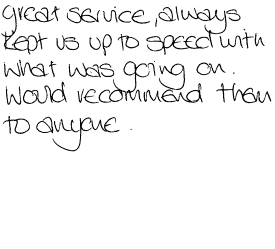 great service, always
kept us up to speed with
what was going on.
Would recommend them
to anyone.